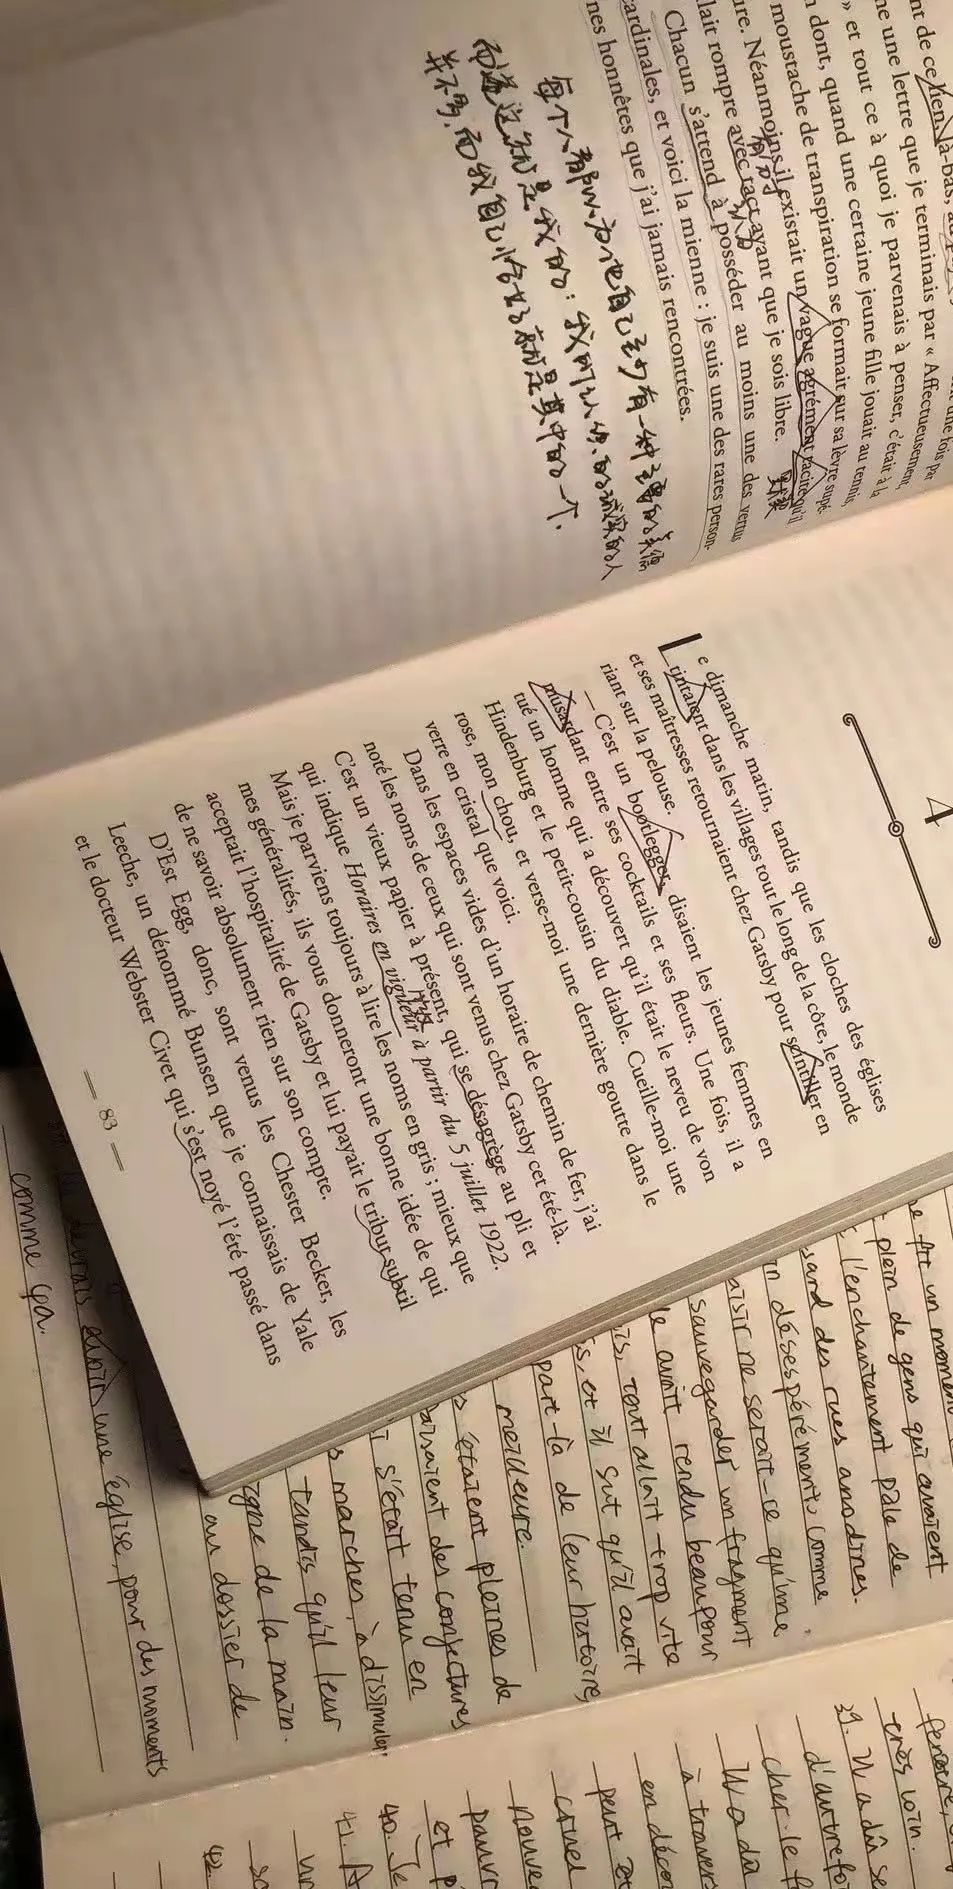 nt de ce lien. Là-bas,
une fois par
ne une lettre que je terminais par « Affectueusement,
» et tout ce à quoi je parvenais à penser, c'était à la
dont, quand une certaine jeune fille jouait au tennis,
moustache de transpiration se formait sur sa lèvre supé-
ure. Néanmoins il existait un vague agrément tacite qu'il
lait rompre avec tact avant que je sois libre.
Chacun s'attend à posséder au moins une des vertus
cardinales, et voici la mienne : je suis une des rares person-
nes honnêtes que j'ai jamais rencontrées.
默契
认为
每个人都以为他自己至少有一种主要的美德
而这就是我的：我所认识的诚实的人
并不多，而我自己恰好就是其中的一个．
4
Le dimanche matin, tandis que les cloches des églises
tintaient dans les villages tout le long de la côte, le monde
et ses maîtresses retournaient chez Gatsby pour scintiller en
riant sur la pelouse.
— C'est un bootlegger, disaient les jeunes femmes en
musardant entre ses cocktails et ses fleurs. Une fois, il a
tué un homme qui a découvert qu'il était le neveu de von
Hindenburg et le petit-cousin du diable. Cueille-moi une
rose, mon chou, et verse-moi une dernière goutte dans le
verre en cristal que voici.
Dans les espaces vides d'un horaire de chemin de fer, j'ai
noté les noms de ceux qui sont venus chez Gatsby cet été-là.
C'est un vieux papier à présent, qui se désagrège au pli et
qui indique Horaires en vigueur à partir du 5 juillet 1922.
Mais je parviens toujours à lire les noms en gris ; mieux que
mes généralités, ils vous donneront une bonne idée de qui
acceptait l'hospitalité de Gatsby et lui payait le tribut subtil
de ne savoir absolument rien sur son compte.
D'Est Egg, donc, sont venus les Chester Becker, les
Leeche, un dénommé Bunsen que je connaissais de Yale
et le docteur Webster Civet qui s'est noyé l'été passé dans
— 83 —
un moment
plein de gens qui avaient
l'enchantement pâle de
sand des rues anodines.
in désespérément, comme
aisir ne serait-ce qu'une
sauvegarder un fragment
le avait rendu beau pour
is, tout allait trop vite
ss, et il sut qu'il avait
part-là de leur histoire,
meilleure.
s étaient pleines de
aisaient des conjectures
i s'était tenu en
s marches, à dissimuler
tandis qu'il leur
igne de la main.
au dossier de
une église, pour des moments
comme ça.
très loin.
39. Il a dû se
d'autrefoi
cher le f
Il a dû
à travers
en décon
peut êt
cruel
nouve
pauvr
et p
40. Je
41. A
42.